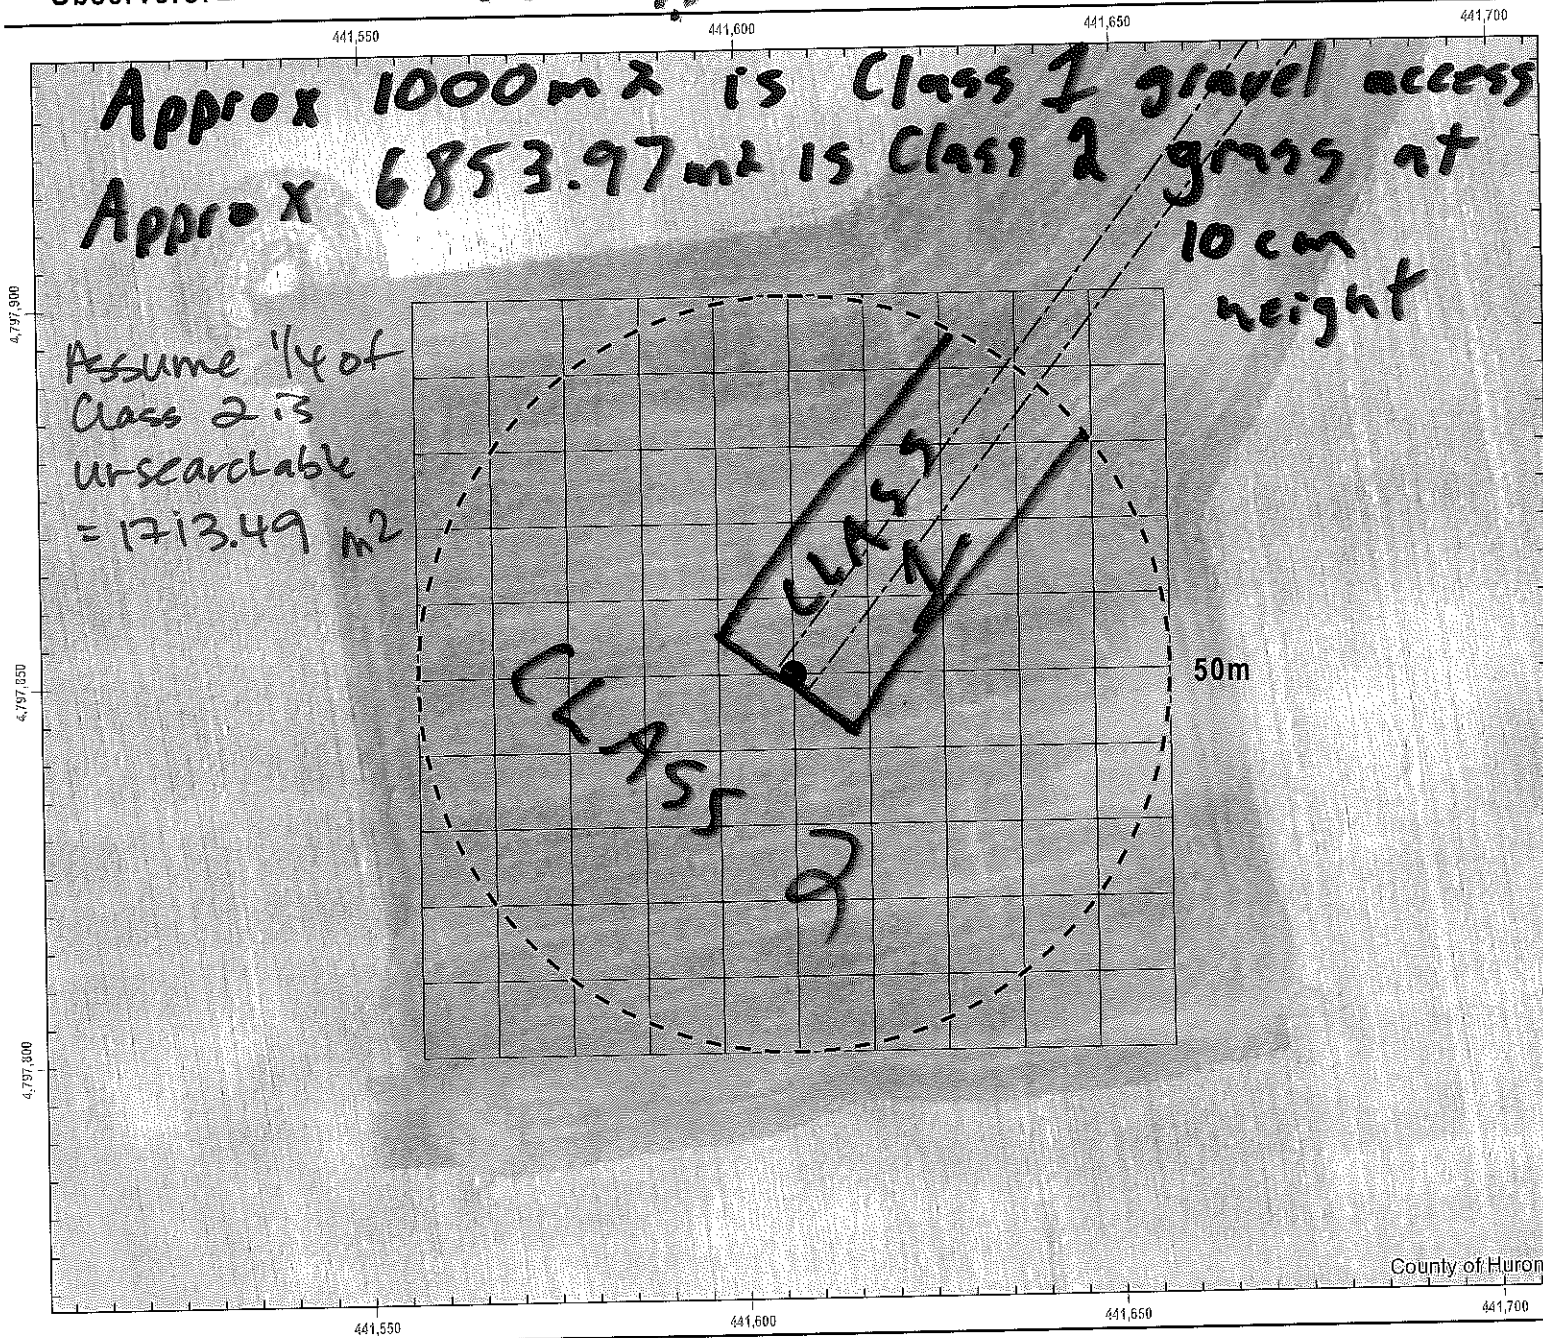 441,550 441,600 441,650 441,700
Approx 1000m2 is Class 1 gravel access
Approx 6853.97m2 is Class 2 grass at
10 cm
height
4,797,900
Assume 1/4 of
Class 2 is
unsearchable
= 1713.49 m2
CLASS
1
4,797,850
50m
CLASS
2
4,797,800
County of Huron
441,550 441,600 441,650 441,700